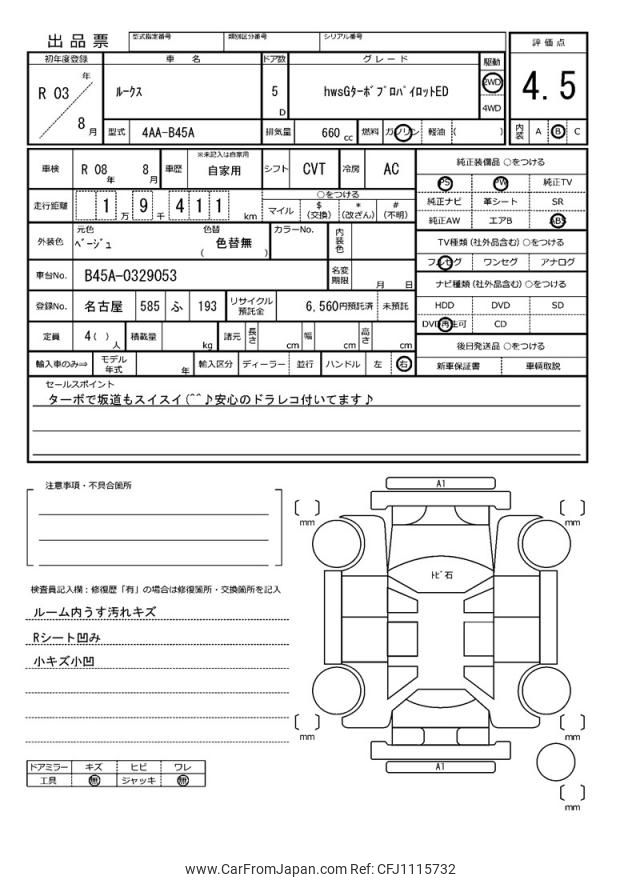 出品票 型式指定番号 類別区分番号 シリアル番号
評価点
初年度登録 車名 ドア数 グレード 駆動
R 03 年 8 月
ルークス 5 D hwsGターボプロパイロットED 2WD 4WD
4.5
型式 4AA-B45A 排気量 660 cc 燃料 ガソリン 軽油 ( )
内装 A B C
車検 R 08 年 8 月 車歴 ※未記入は自家用 自家用 シフト CVT 冷房 AC
純正装備品 ○をつける
PS PW 純正TV
純正ナビ 革シート SR
純正AW エアB ABS
走行距離 1 万 9 千 4 1 1 km
○をつける
マイル $ (交換) * (改ざん) # (不明)
TV種類(社外品含む)○をつける
フルセグ ワンセグ アナログ
外装色 元色 ベージュ 色替 色替無 ( ) カラーNo. 内装色
車台No. B45A-0329053 名変期限 月 日
ナビ種類(社外品含む)○をつける
HDD DVD SD
DVD再生可 CD
登録No. 名古屋 585 ふ 193 リサイクル預託金 6,560円預託済 未預託
定員 4( ) 人 積載量 kg 諸元 長さ cm 幅 cm 高さ cm
後日発送品 ○をつける
新車保証書 車輌取説
輸入車のみ⇒ モデル年式 年 輸入区分 ディーラー 並行 ハンドル 左 右
セールスポイント
ターボで坂道もスイスイ(^^♪安心のドラレコ付いてます♪
注意事項・不具合箇所
検査員記入欄:修復歴「有」の場合は修復箇所・交換箇所を記入
ルーム内うす汚れキズ
Rシート凹み
小キズ小凹
A1
mm
mm
トビ石
mm
mm
A1
mm
ドアミラー キズ ヒビ ワレ
工具 無 ジャッキ 無
www.CarFromJapan.com Ref: CFJ1115732